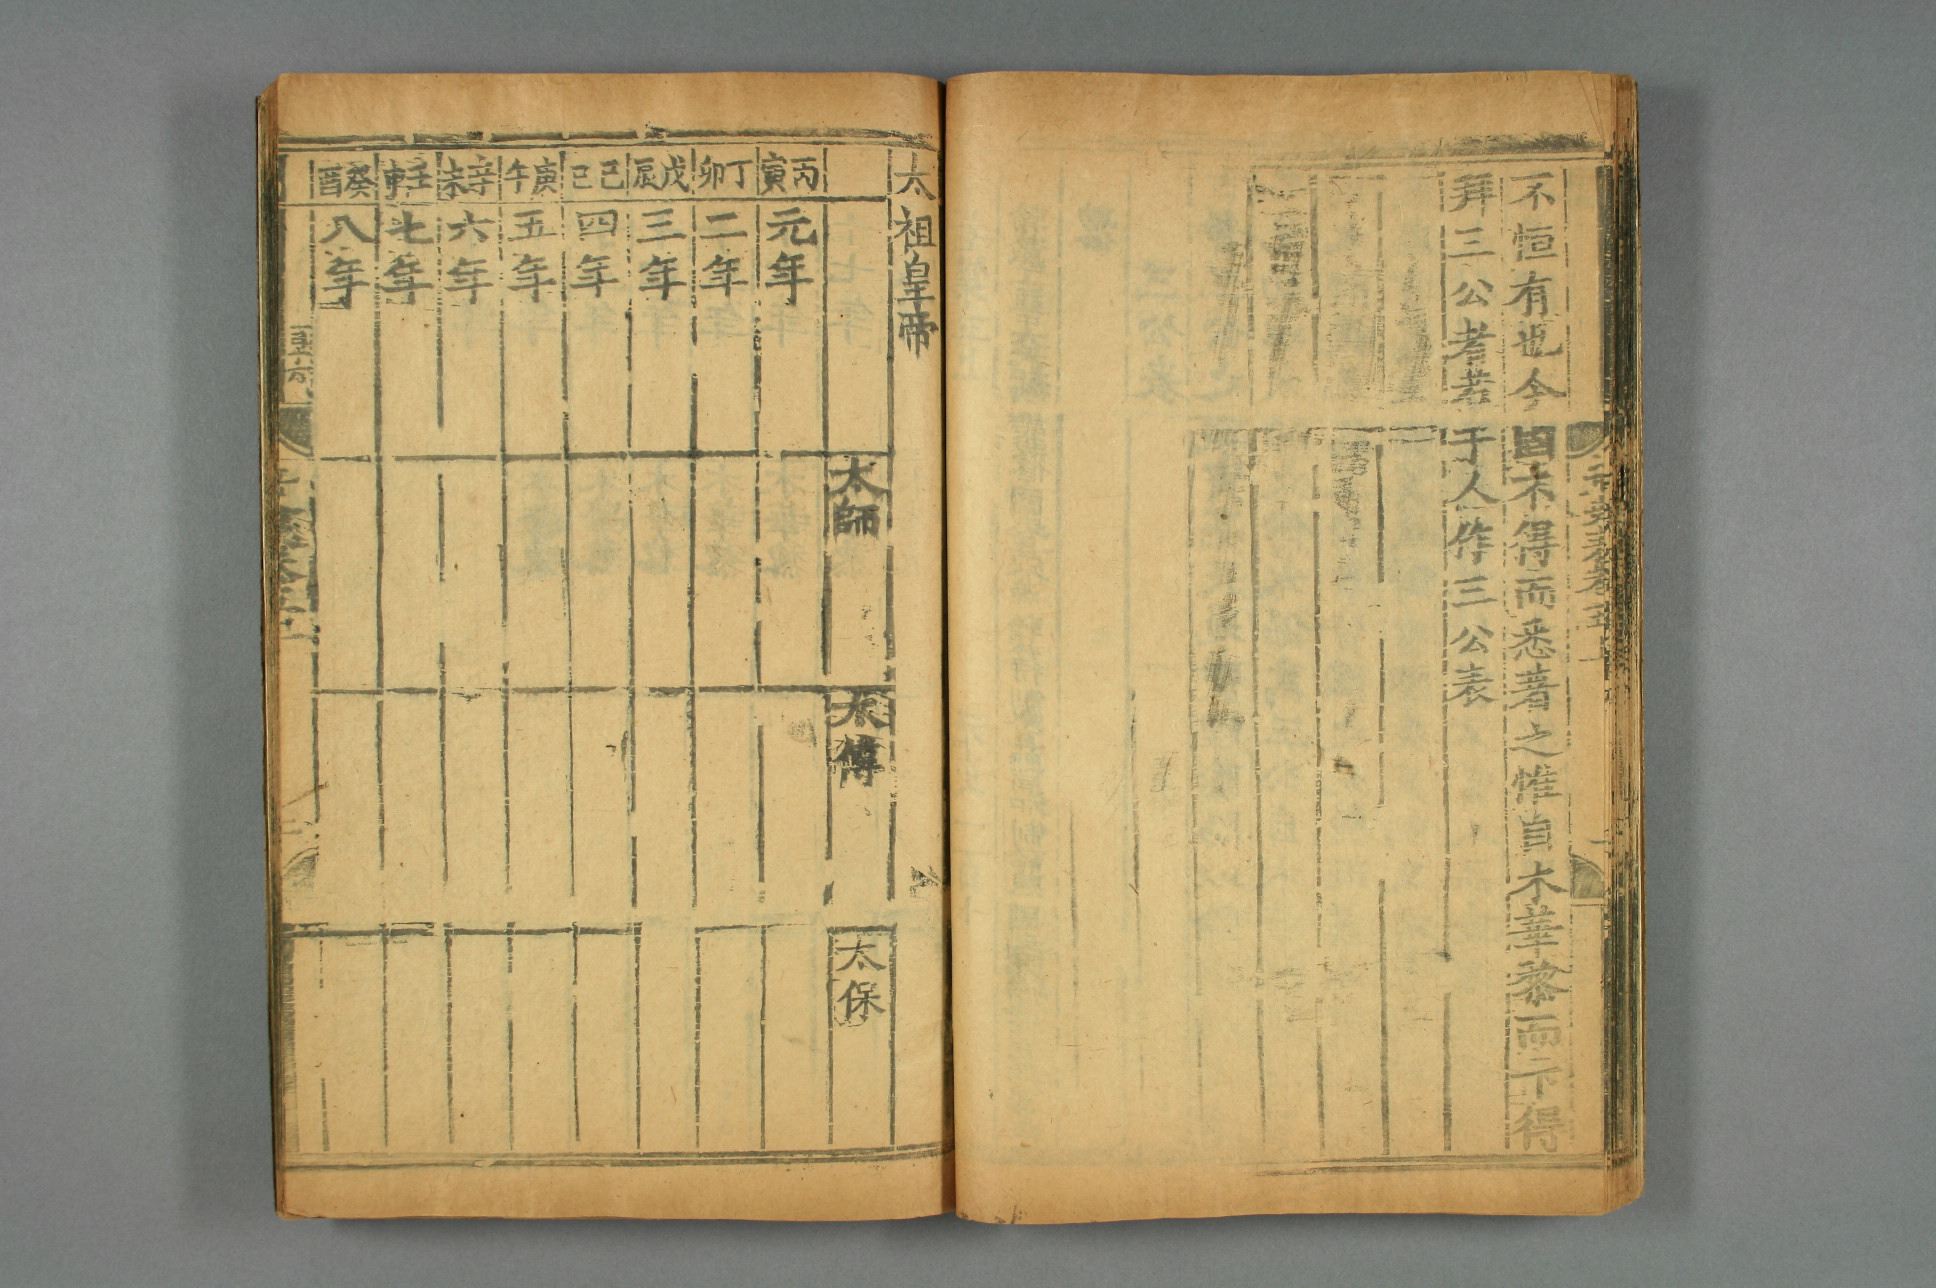 不恒有也今固不得而悉著之惟自木華黎而下得
拜三公者若于人作三公表
太祖皇帝
太師
太傅
太保
丙寅
元年
丁卯
二年
戊辰
三年
己巳
四年
庚午
五年
辛未
六年
壬申
七年
癸酉
八年